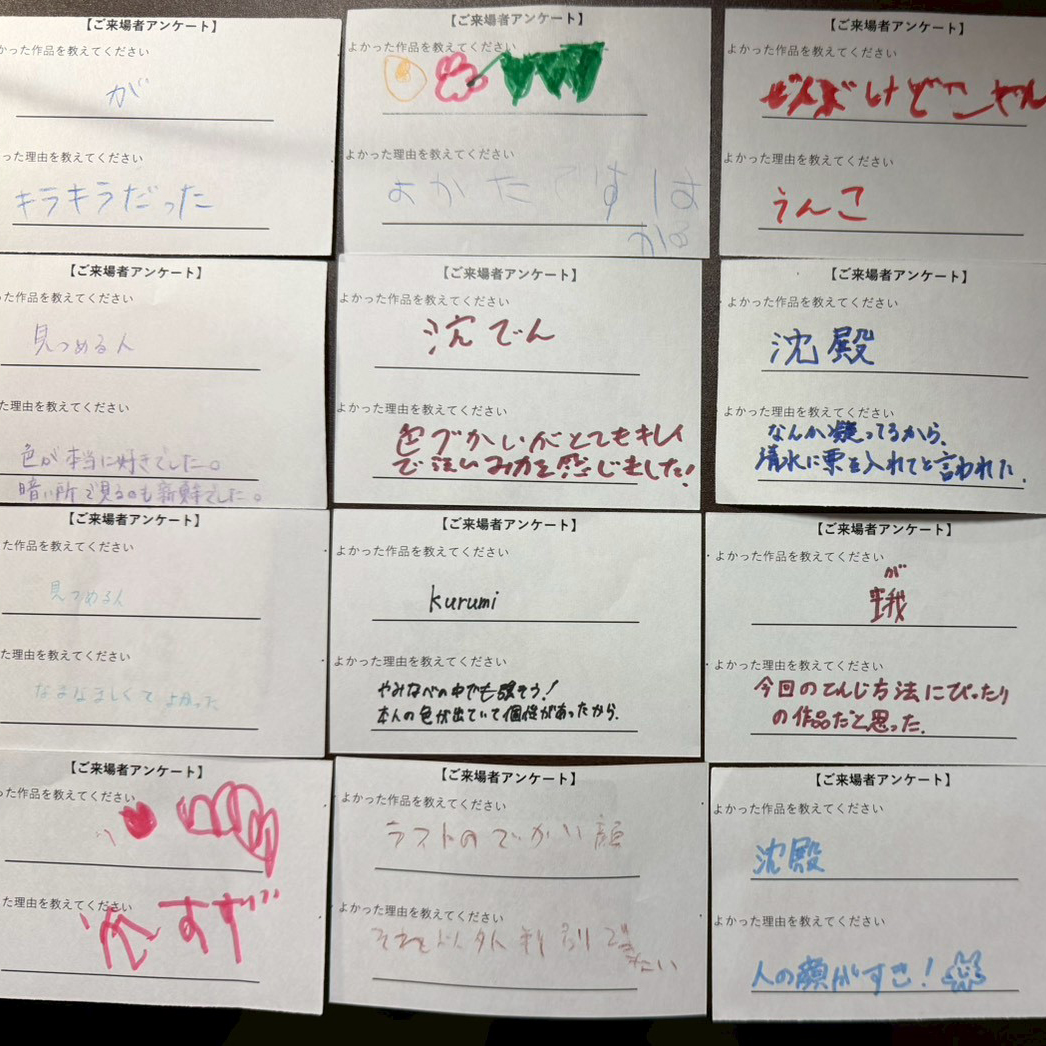 【ご来場者アンケート】
かった作品を教えてください
が
った理由を教えてください
キラキラだった
【ご来場者アンケート】
よかった作品を教えてください
よかった理由を教えてください
よかた
【ご来場者アンケート】
よかった作品を教えてください
ぜんぶ
よかった理由を教えてください
うんこ
【ご来場者アンケート】
った作品を教えてください
見つめる人
た理由を教えてください
色が本当に好きでした。
暗い所で見るのも新鮮でした。
【ご来場者アンケート】
よかった作品を教えてください
沈でん
よかった理由を教えてください
色づかいがとてもキレイ
で深いみ力を感じました!
【ご来場者アンケート】
よかった作品を教えてください
沈殿
よかった理由を教えてください
なんか凝ってるから、
清水に栗を入れてと言われた.
た作品を教えてください
見つめる人
た理由を教えてください
なまなましくてよかった
【ご来場者アンケート】
よかった作品を教えてください
kurumi
よかった理由を教えてください
やみなべの中でも強そう!
本人の色が出ていて個性があったから.
【ご来場者アンケート】
よかった作品を教えてください
が
蛾
よかった理由を教えてください
今回のてんじ方法にぴったり
の作品だと思った.
【ご来場者アンケート】
った作品を教えてください
た理由を教えてください
【ご来場者アンケート】
よかった作品を教えてください
ラストのでかい顔
よかった理由を教えてください
それ以外判別できない
【ご来場者アンケート】
よかった作品を教えてください
沈殿
よかった理由を教えてください
人の顔がすき!